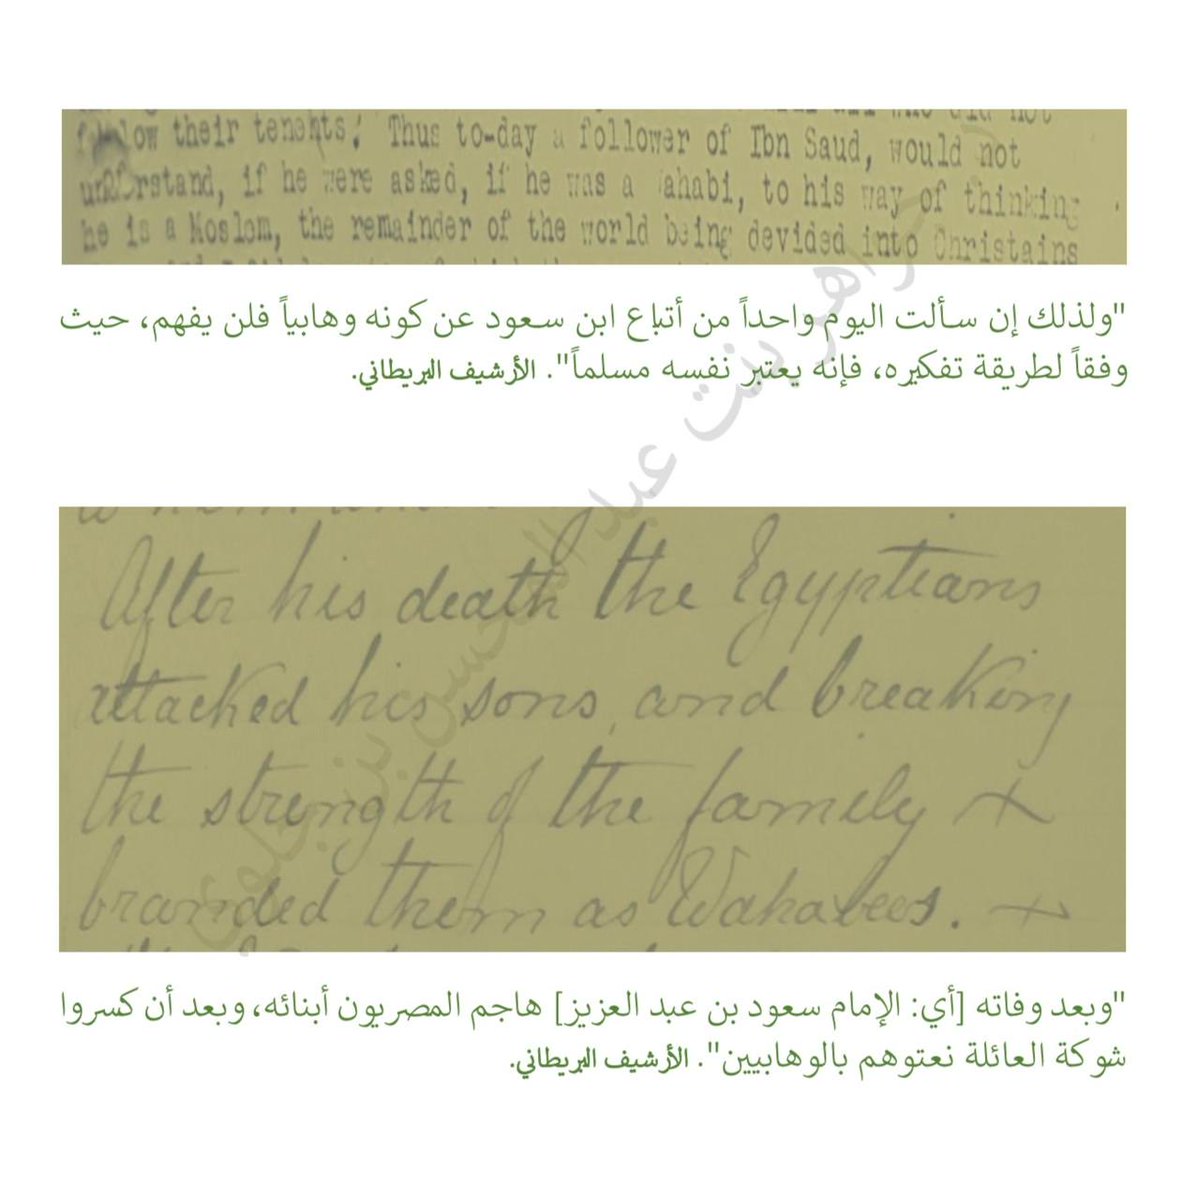 follow their tenents. Thus to-day a follower of Ibn Saud, would not
understand, if he were asked, if he was a Wahabi, to his way of thinking
he is a Moslem, the remainder of the world being devided into Christains
"ولذلك إن سألت اليوم واحداً من أتباع ابن سعود عن كونه وهابياً فلن يفهم، حيث
وفقاً لطريقة تفكيره، فإنه يعتبر نفسه مسلماً". الأرشيف البريطاني.
After his death the Egyptians
attacked his sons, and breaking
the strength of the family +
branded them as Wahabees. +
"وبعد وفاته [أي: الإمام سعود بن عبد العزيز] هاجم المصريون أبنائه، وبعد أن كسروا
شوكة العائلة نعتوهم بالوهابيين". الأرشيف البريطاني.
جواهر بنت عبدالمحسن بن جلوي